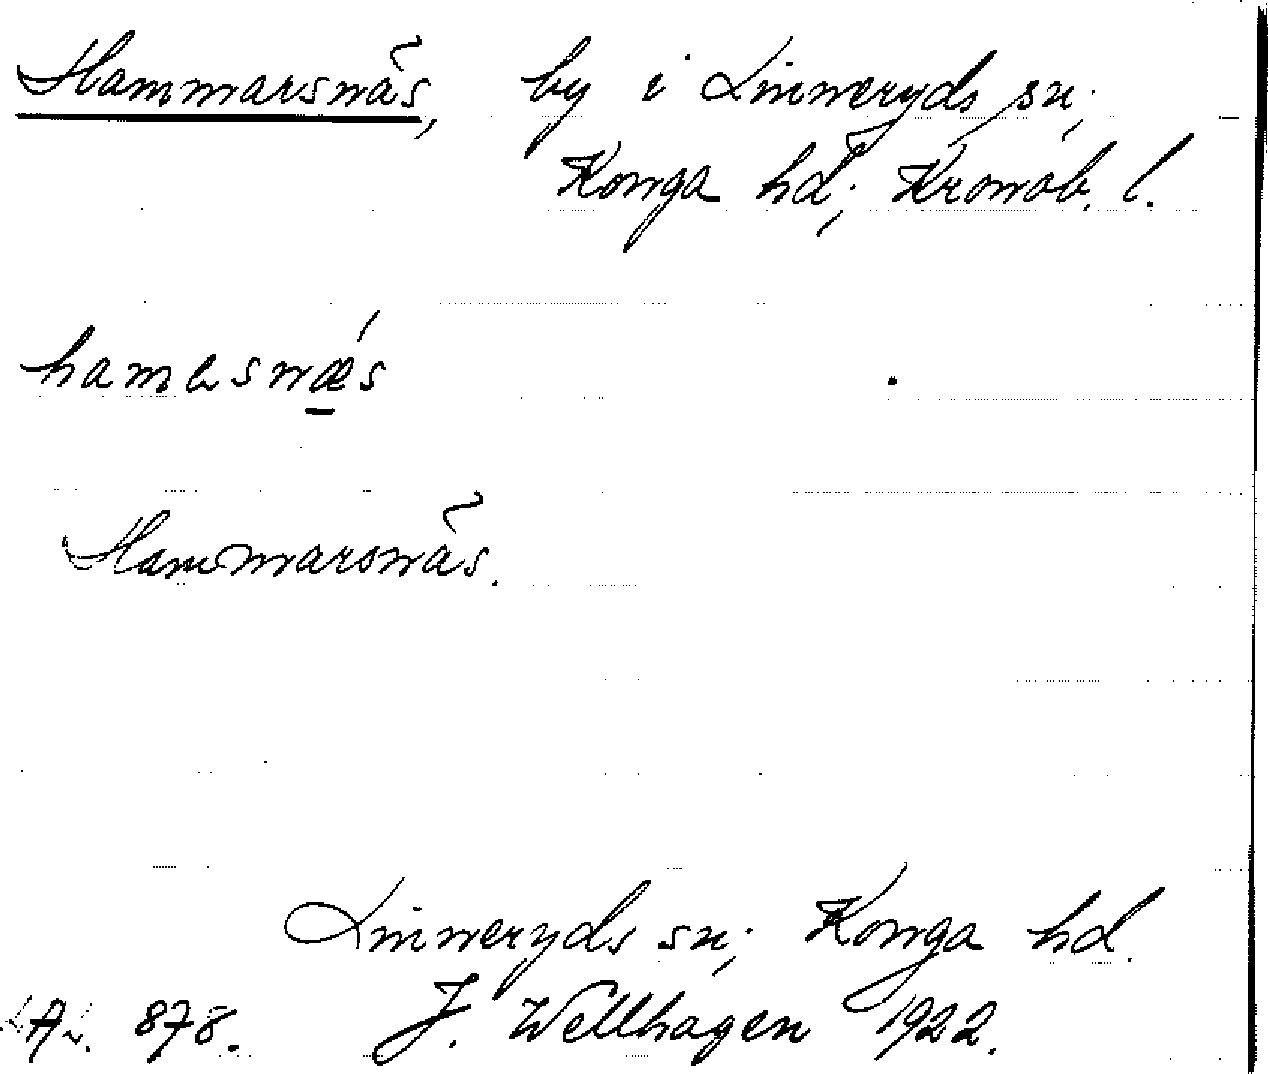 Hammarsnäs, by i Linneryds sn;
Konga hd; Kronob. l.
hamɐsnǽs
Hammarsnäs.
Linneryds sn; Konga hd.
878. J. Wellhagen 1922.